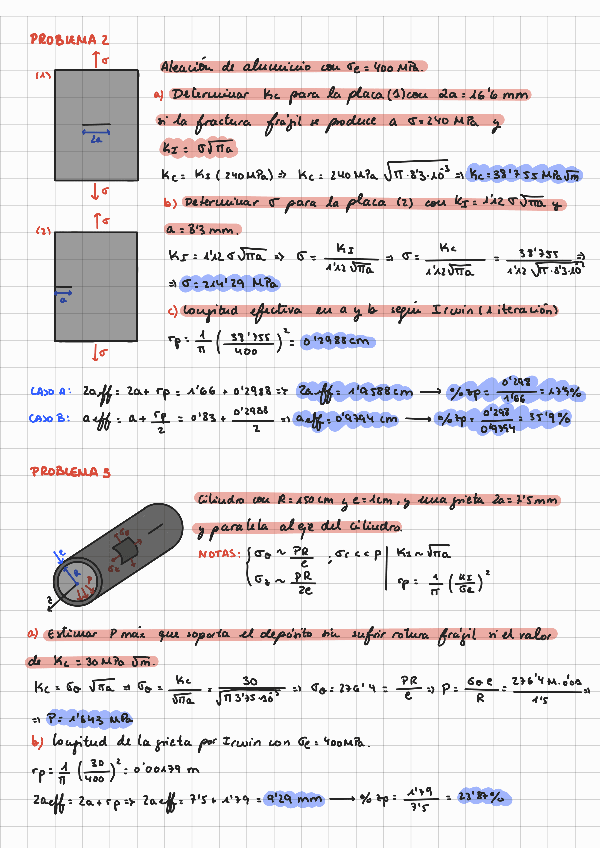 PROBLEMA 2
(1)
σ
2a
σ
Aleación de aluminio con σe = 400 MPa.
a) Determinar Kc para la placa (1) con 2a = 16'6 mm
si la fractura frágil se produce a σ = 240 MPa y
KI = σ√πa
Kc = KI (240MPa) ⇒ Kc = 240 MPa √π·8'3·10⁻³ ⇒ Kc = 38'755 MPa√m
b) Determinar σ para la placa (2) con KI = 1'12 σ√πa y
a = 8'3 mm.
(2)
σ
a
σ
KI = 1'12 σ√πa ⇒ σ = KI / 1'12√πa ⇒ σ = Kc / 1'12√πa = 38'755 / 1'12√π·8'3·10⁻³ ⇒
⇒ σ = 214'29 MPa
c) Longitud efectiva en a y b según Irwin (1 iteración)
rp = 1/π (38'755/400)² = 0'2988 cm
CASO A: 2aeff = 2a + rp = 1'66 + 0'2988 ⇒ 2aeff = 1'9588 cm → % rp = 0'298/1'66 = 17'9%
CASO B: aeff = a + rp/2 = 0'83 + 0'2988/2 ⇒ aeff = 0'9794 cm → % rp = 0'298/0'9794 = 35'9%
PROBLEMA 3
Cilindro con R = 150 cm y e = 1 cm, y una grieta 2a = 7'5 mm
y paralela al eje del cilindro.
NOTAS: { σθ ~ PR/e ; σr << P | KI ~ √πa
σz ~ PR/2e | rp = 1/π (KI/σe)²
e
R
P
z
σθ
σz
a) Estimar P máx que soporta el depósito sin sufrir rotura frágil si el valor
de Kc = 30 MPa √m.
Kc = σθ √πa ⇒ σθ = Kc/√πa = 30/√π 3'75·10⁻³ ⇒ σθ = 276'4 = PR/e ⇒ P = σθ e/R = 276'4 M·0'01/1'5 ⇒
⇒ P = 1'843 MPa
b) Longitud de la grieta por Irwin con σe = 400MPa.
rp = 1/π (30/400)² = 0'00179 m
2aeff = 2a + rp ⇒ 2aeff = 7'5 + 1'79 = 9'29 mm → % rp = 1'79/7'5 = 23'87%